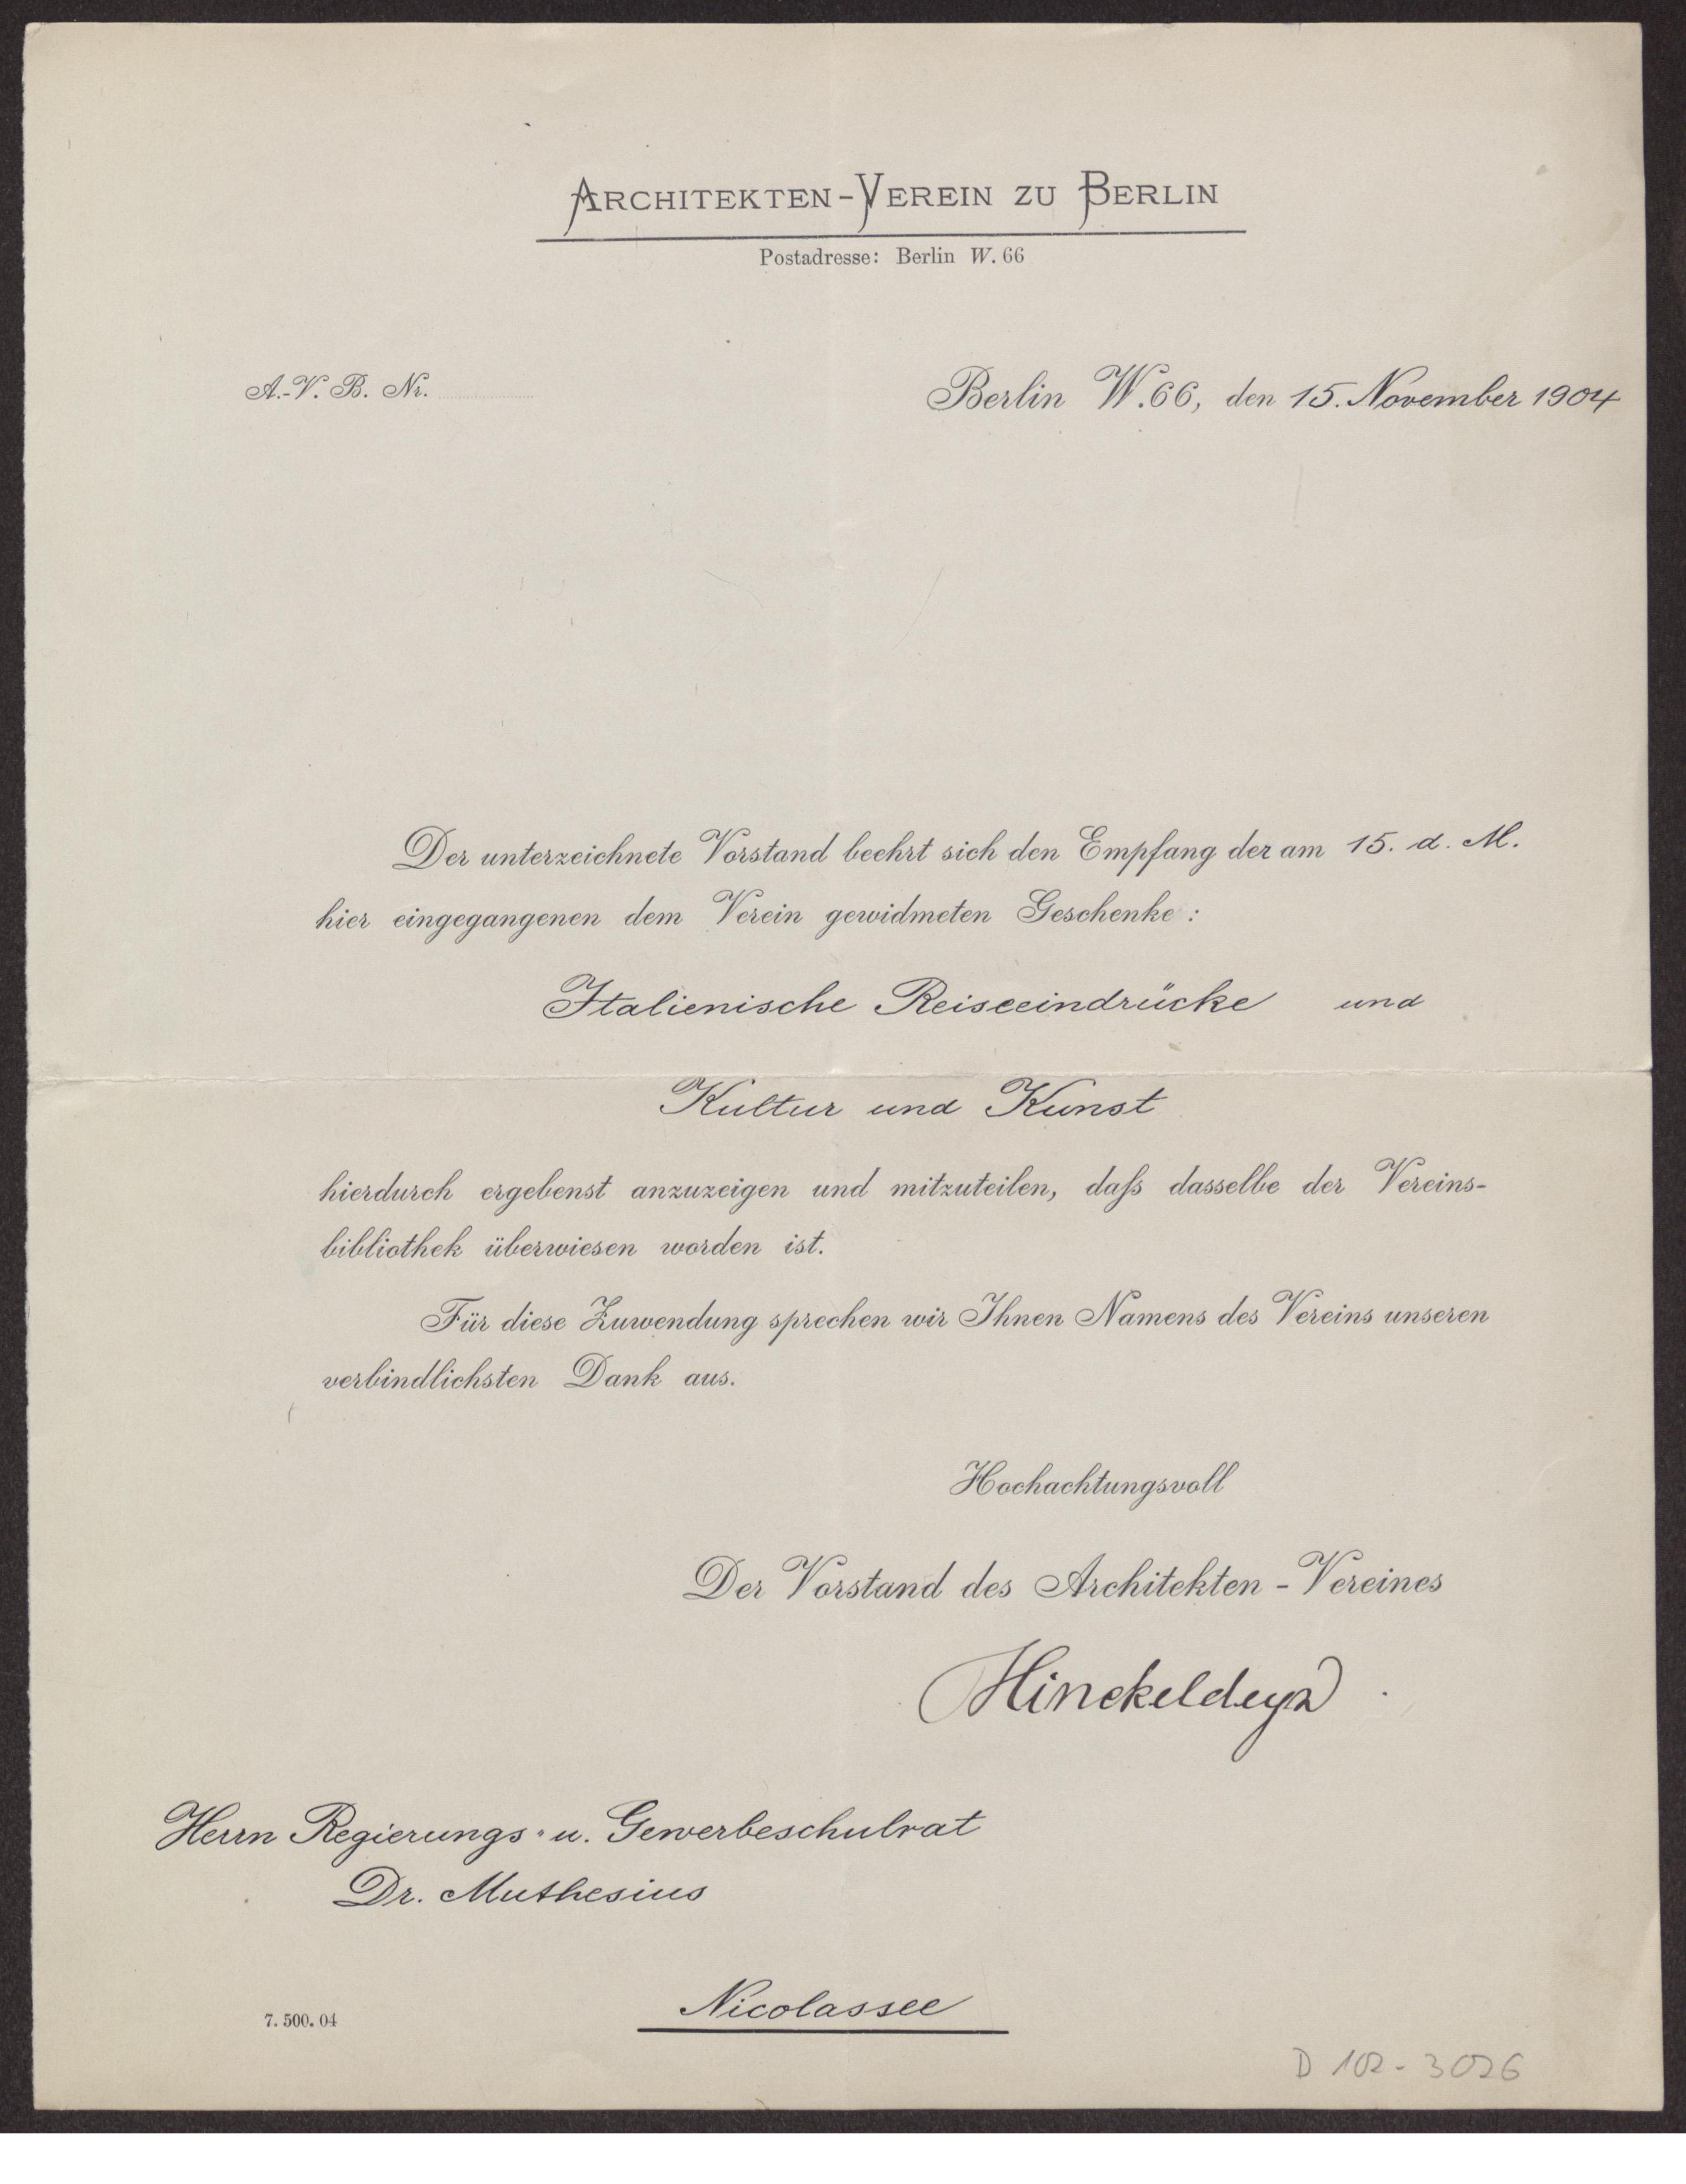 ARCHITEKTEN-VEREIN ZU BERLIN
Postadresse: Berlin W. 66
A.-V. B. Nr.
Berlin W. 66, den 15. November 1904
Der unterzeichnete Vorstand beehrt sich den Empfang der am 15. d. M.
hier eingegangenen dem Verein gewidmeten Geschenke:
Italienische Reiseeindrücke und
Kultur und Kunst
hierdurch ergebenst anzuzeigen und mitzuteilen, daſs dasselbe der Vereins-
bibliothek überwiesen worden ist.
Für diese Zuwendung sprechen wir Ihnen Namens des Vereins unseren
verbindlichsten Dank aus.
Hochachtungsvoll
Der Vorstand des Architekten-Vereines
Hinckeldeyn
Herrn Regierungs- u. Gewerbeschulrat
Dr. Muthesius
Nicolassee
7. 500. 04
D 102-3026